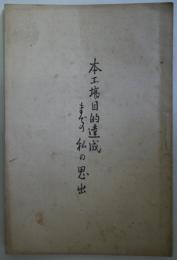 本工場目的達成
までの私の思出